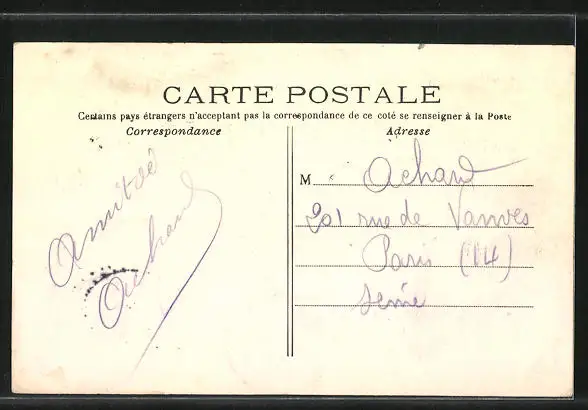 CARTE POSTALE
Certains pays étrangers n'acceptant pas la correspondance de ce coté se renseigner à la Poste
Correspondance
Adresse
Amitié
Achard
M Achard
201 rue de Vanves
Paris (14)
Seine